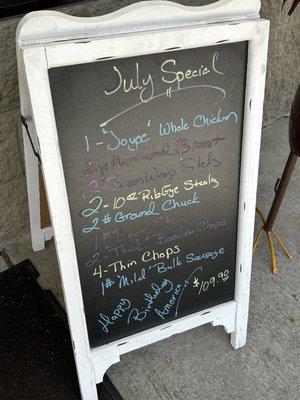 July Special
1 - "Joyce" Whole Chicken
2 - Bacon Wrap Filets
2 - 10oz RibEye Steaks
2# Ground Chuck
2 - "Thick" Boneless Chops
4 - Thin Chops
1# "Mild" Bulk Sausage
Happy
Birthday
America
$109.98